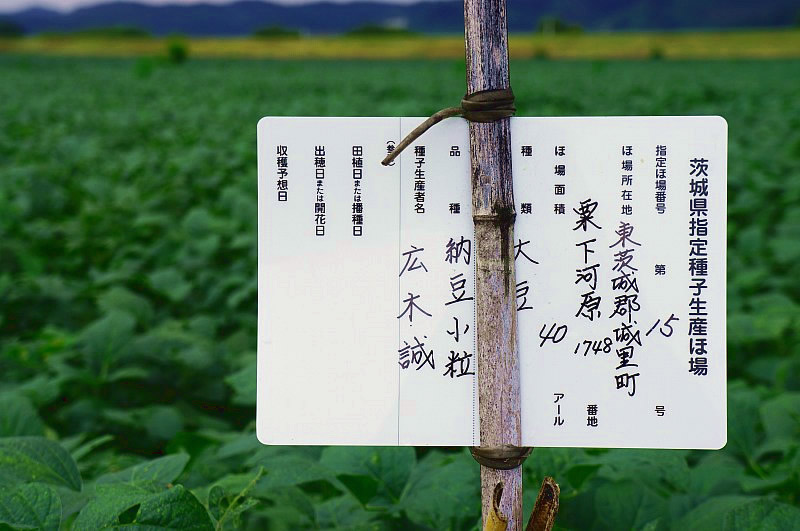 茨城県指定種子生産ほ場
指定ほ場番号 第 15 号
ほ場所在地 東茨城郡城里町
粟下河原 1748 番地
ほ場面積 40 アール
種類 大豆
品種 納豆小粒
種子生産者名 広木 誠
田植日または播種日
出穂日または開花日
収穫予想日